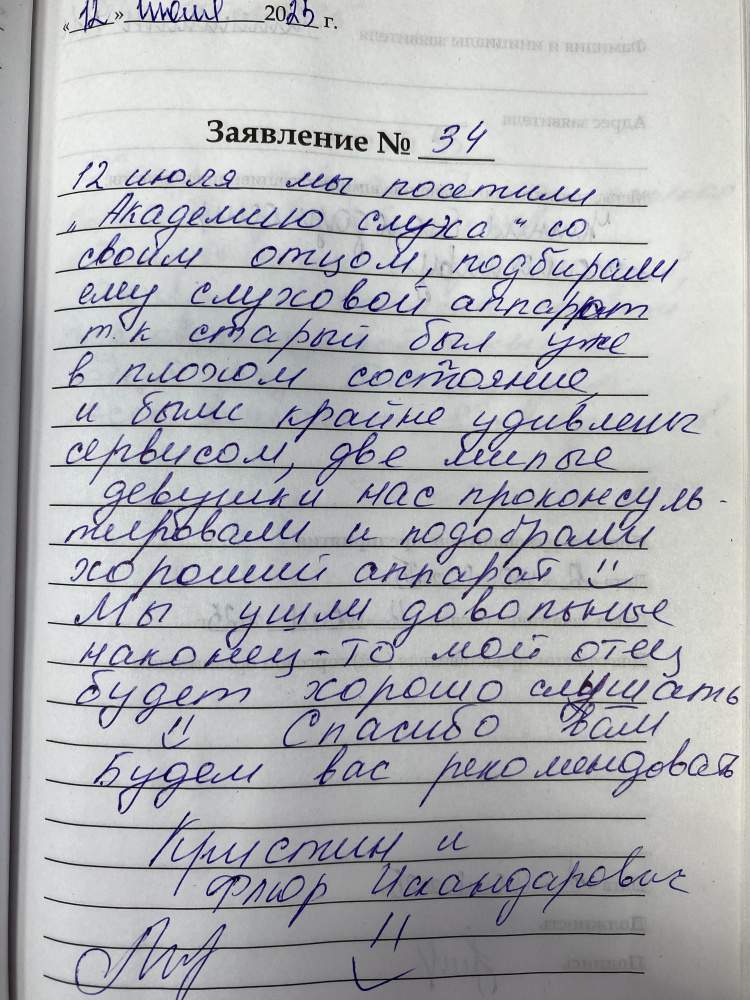 «12» июля 2025 г.
Заявление № 34
12 июля мы посетили
„Академию слуха" со
своим отцом, подбирали
ему слуховой аппарат
т.к старый был уже
в плохом состояние,
и были крайне удивлены
сервисом, две милые
девушки нас проконсуль-
тировали и подобрали
хороший аппарат
Мы ушли довольные
наконец-то мой отец
будет хорошо слышать
Спасибо вам
Будем вас рекомендовать
Кристин и
Флюр Искандарович